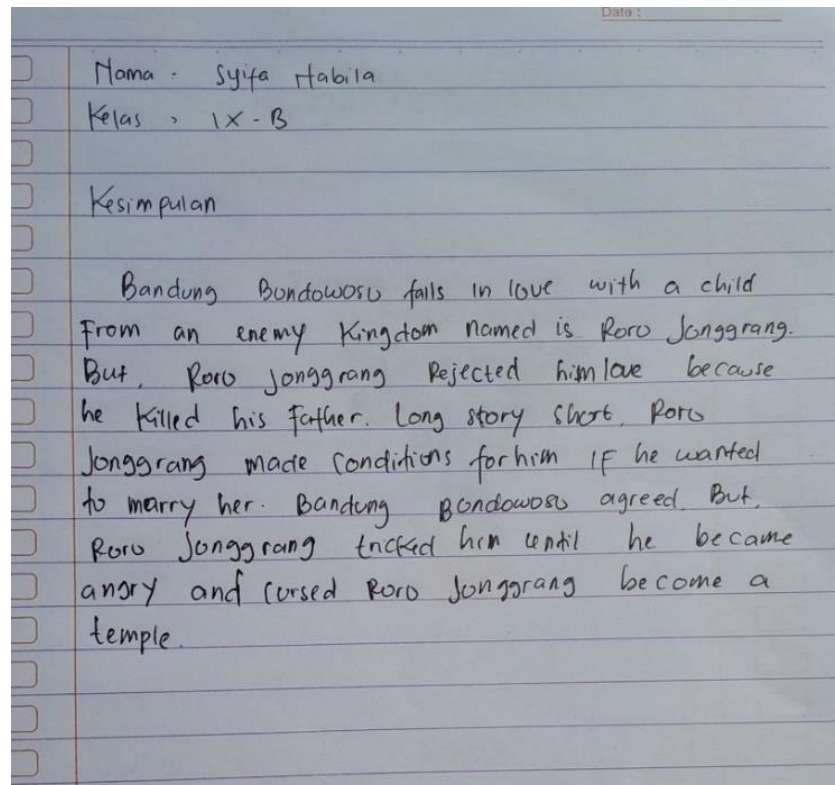 Date :
Nama : Syifa Habila
Kelas : IX - B
Kesimpulan
Bandung Bondowoso falls in love with a child
From an enemy Kingdom named is Roro Jonggrang.
But, Roro Jonggrang Rejected him love because
he killed his father. Long story short, Roro
Jonggrang made conditions for him IF he wanted
to marry her. Bandung Bondowoso agreed. But,
Roro Jonggrang tricked him until he became
angry and cursed Roro Jonggrang become a
temple.